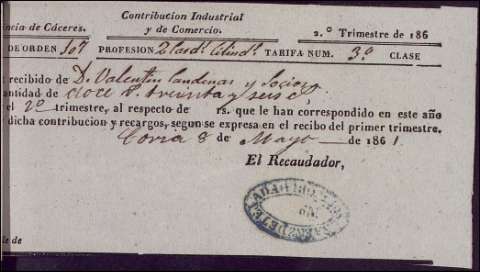 Contribucion Industrial
y de Comercio.
incia de Cáceres.
2.º Trimestre de 186
DE ORDEN 107 PROFESION 2 Card.s Cilind.s TARIFA NUM. 3.ª CLASE
recibido de D. Valentin Candenas y Socios
antidad de doce r.s treinta y seis c.
el 2.º trimestre, al respecto de rs. que le han correspondido en este año
dicha contribucion y recargos, segun se expresa en el recibo del primer trimestre.
Coria 8 de Mayo de 1861.
El Recaudador,
de de